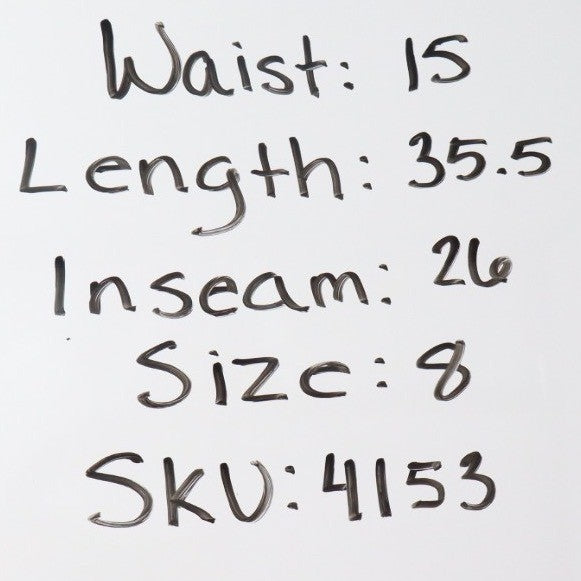 Waist: 15
Length: 35.5
Inseam: 26
Size: 8
SKU: 4153